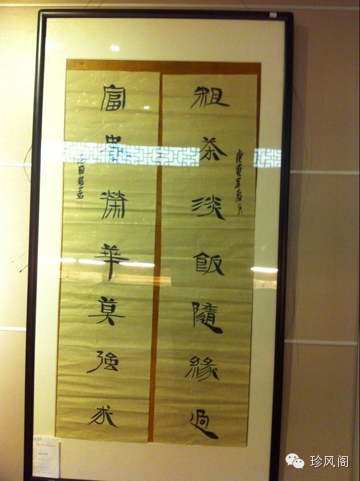 粗茶淡飯隨緣過
富貴榮華莫強求
珍风阁